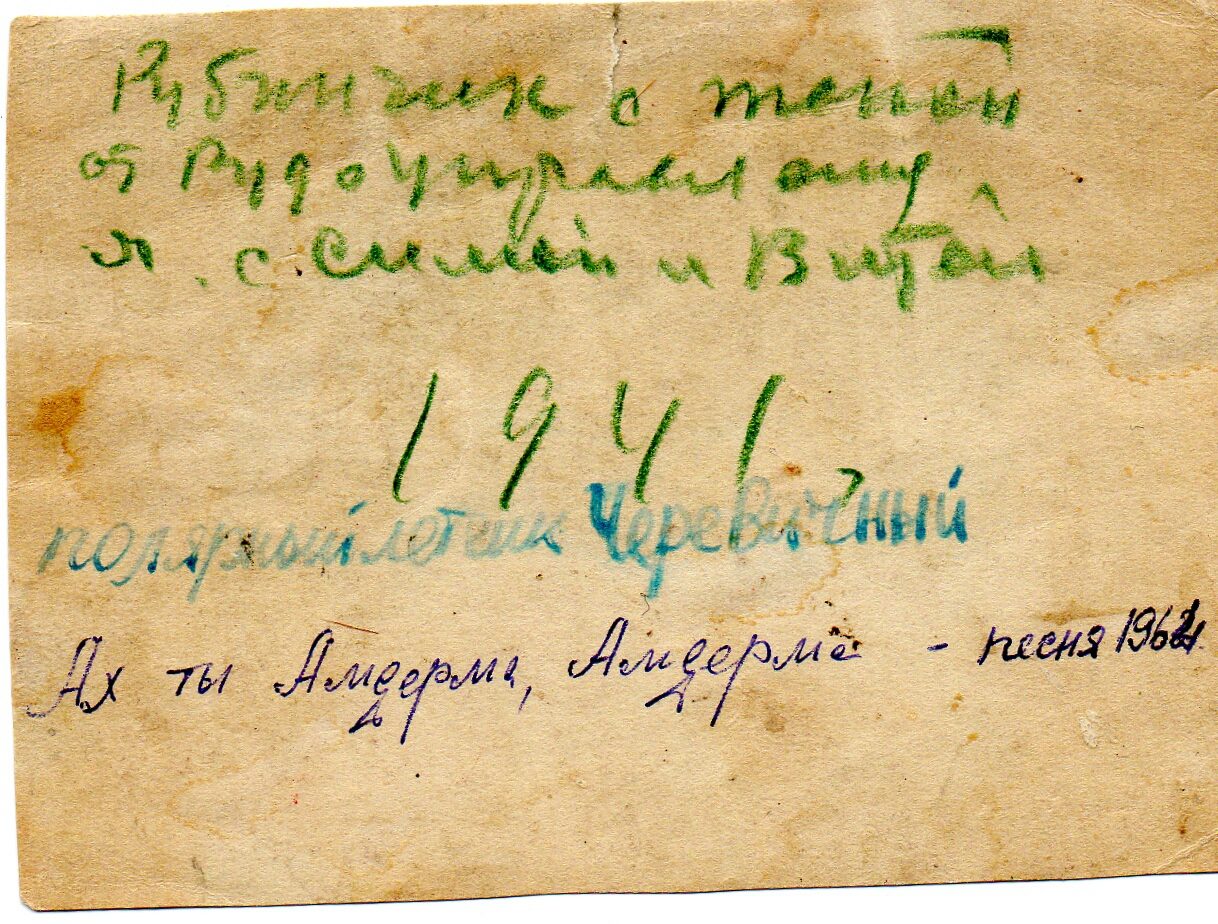 Рубинчик с женой
от Рудоуправления
я. с Симой и Витей
1941,
полярный летчик Черевичный
Ах ты Амдерма, Амдерма - песня